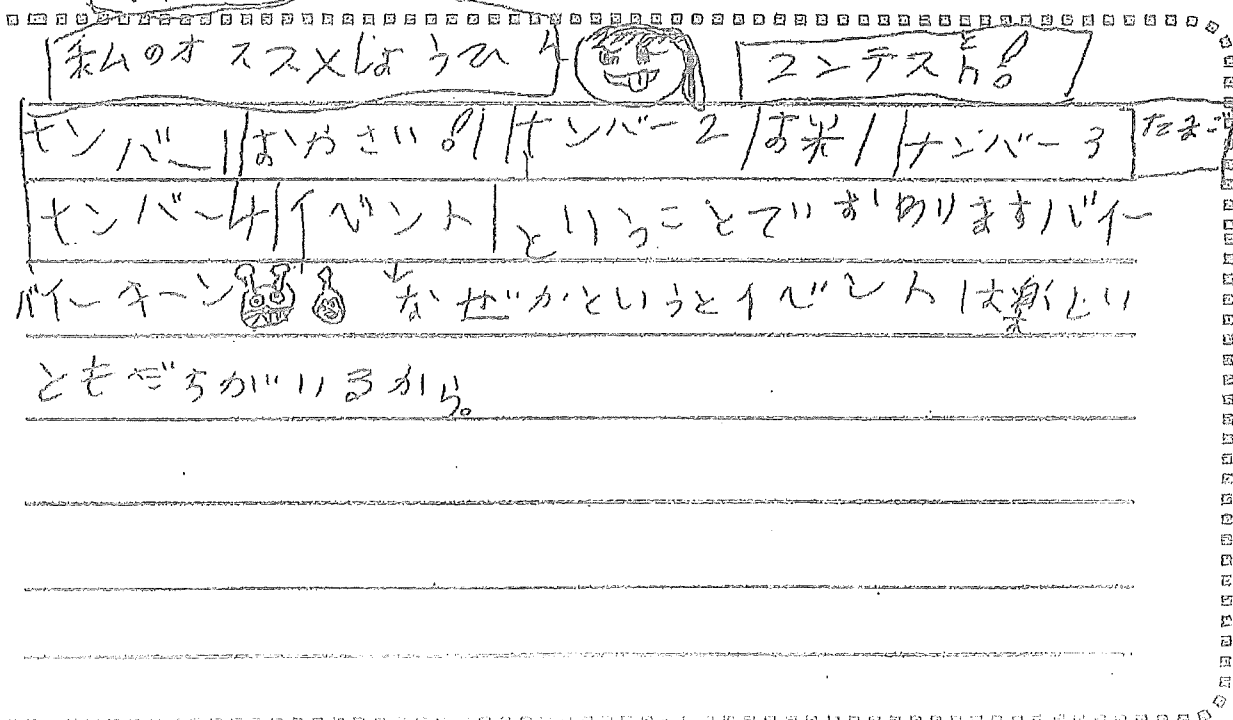 私のオススメしょうひん コンテスト!
ナンバー1 おやさい! ナンバー2 お米 ナンバー3 たまご
ナンバー4 イベント ということでいじょうおわりますバイー
バイーキーン なぜかというとイベントは楽しい
ともだちがいるから。